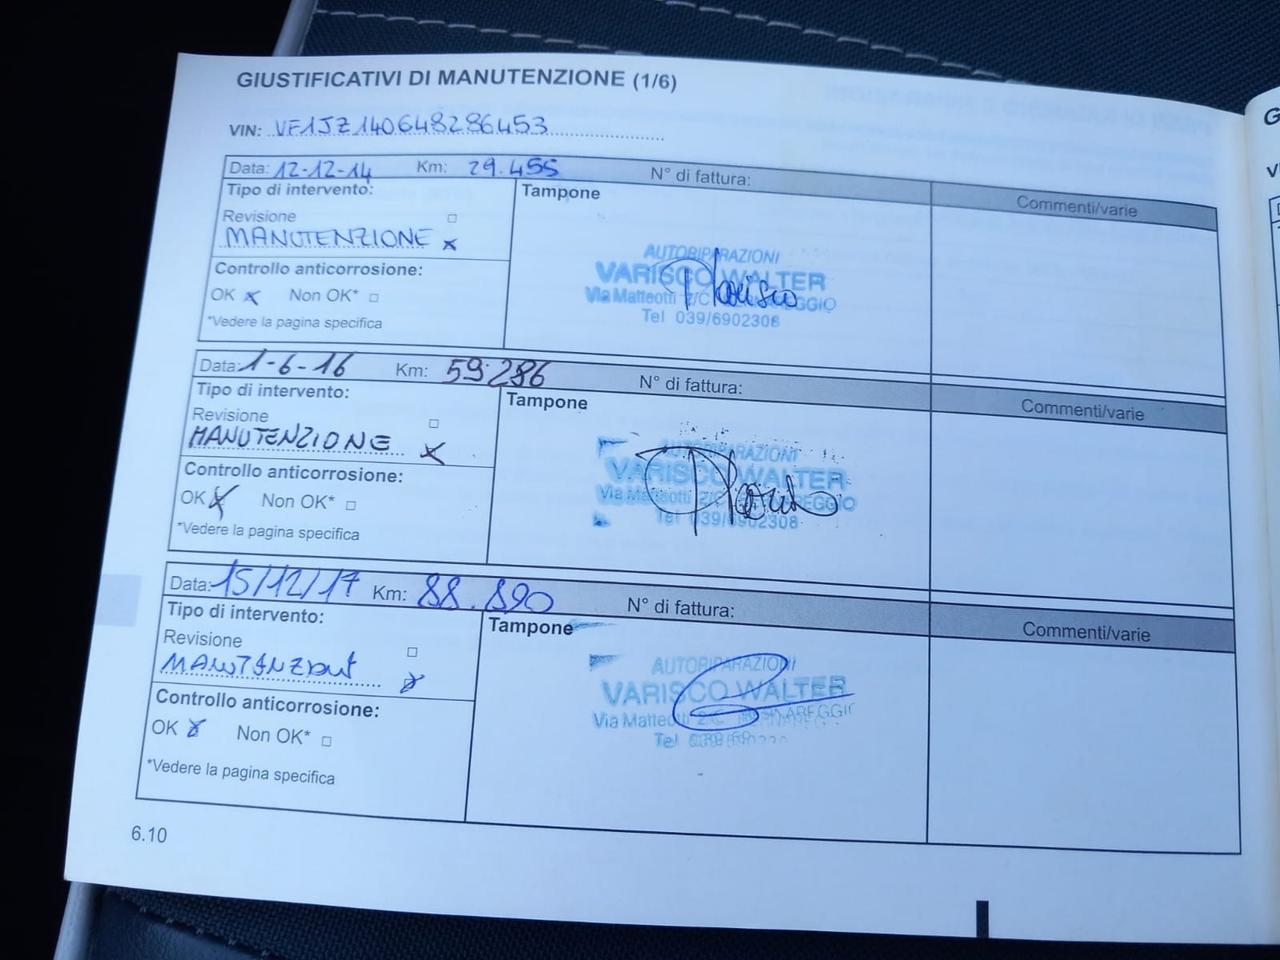 GIUSTIFICATIVI DI MANUTENZIONE (1/6)
VIN: VF1JZ140648286453
Data: 12-12-14 Km: 29.455 N° di fattura:
Tipo di intervento:
Tampone
Commenti/varie
Revisione □
MANUTENZIONE x
Controllo anticorrosione:
OK x Non OK* □
*Vedere la pagina specifica
AUTORIPARAZIONI
VARISCO WALTER
Via Matteotti 2/C
Tel 039/6902308
Data: 1-6-16 Km: 59.286 N° di fattura:
Tipo di intervento:
Tampone
Commenti/varie
Revisione □
MANUTENZIONE x
Controllo anticorrosione:
OK x Non OK* □
*Vedere la pagina specifica
AUTORIPARAZIONI
VARISCO WALTER
Via Matteotti 2/C
Tel 039/6902308
Data: 15/12/17 Km: 88.890 N° di fattura:
Tipo di intervento:
Tampone
Commenti/varie
Revisione □
MANUTENZIONE x
Controllo anticorrosione:
OK x Non OK* □
*Vedere la pagina specifica
AUTORIPARAZIONI
VARISCO WALTER
Via Matteotti 2/C
Tel
6.10